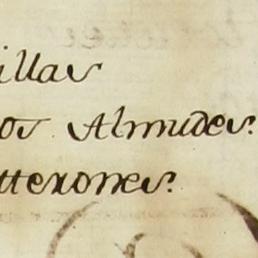 illas
os Almudes.
tterones.